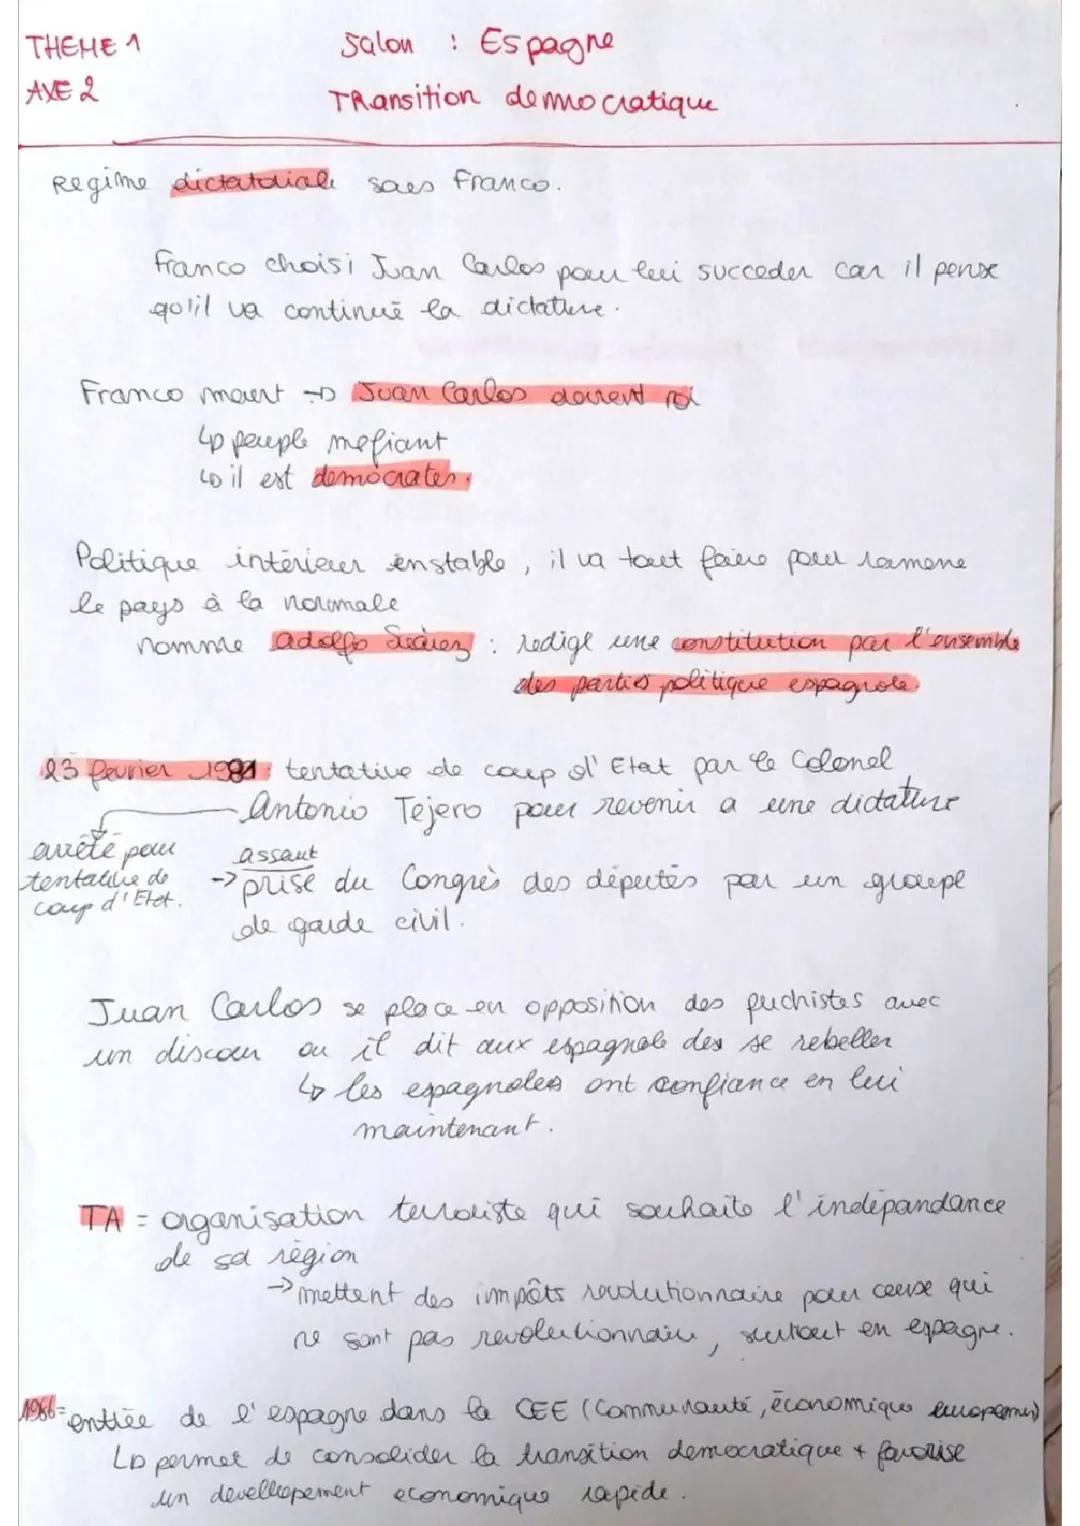 THEME 1
Jalon : Espagne
AXE 2
TRansition democratique
Regime dictatoriale sous Franco.
franco choisi Juan Carlos pour lui succeder car il pense
qu'il va continué la dictature.
Franco meurt → Juan Carlos devient roi
↳ peuple mefiant
↳ il est democrates.
Politique intérieur enstable, il va tout faire pour ramene
le pays à la normale
nomme adolfo Suárez : redige une constitution par l'ensemble
des parties politique espagnole.
23 fevrier 1981 : tentative de coup d'Etat par le Colonel
Antonio Tejero pour revenir a une dictature
arrêté pour
tentative de
coup d'Etat.
assaut
→ prise du Congrès des députés par un groupe
de garde civil.
Juan Carlos se place en opposition des puchistes avec
un discour ou il dit aux espagnole des se rebeller
↳ les espagnoles ont confiance en lui
maintenant.
TA = organisation terroriste qui souhaite l'indépandance
de sa région
→ mettent des impôts revolutionnaire pour ceux qui
ne sont pas revolutionnaire, surtout en espagne.
1986 = entrée de l'espagne dans la CEE (Communauté, économique europeenne)
↳ permet de consolider la transition democratique + favorise
un developement economique rapide.